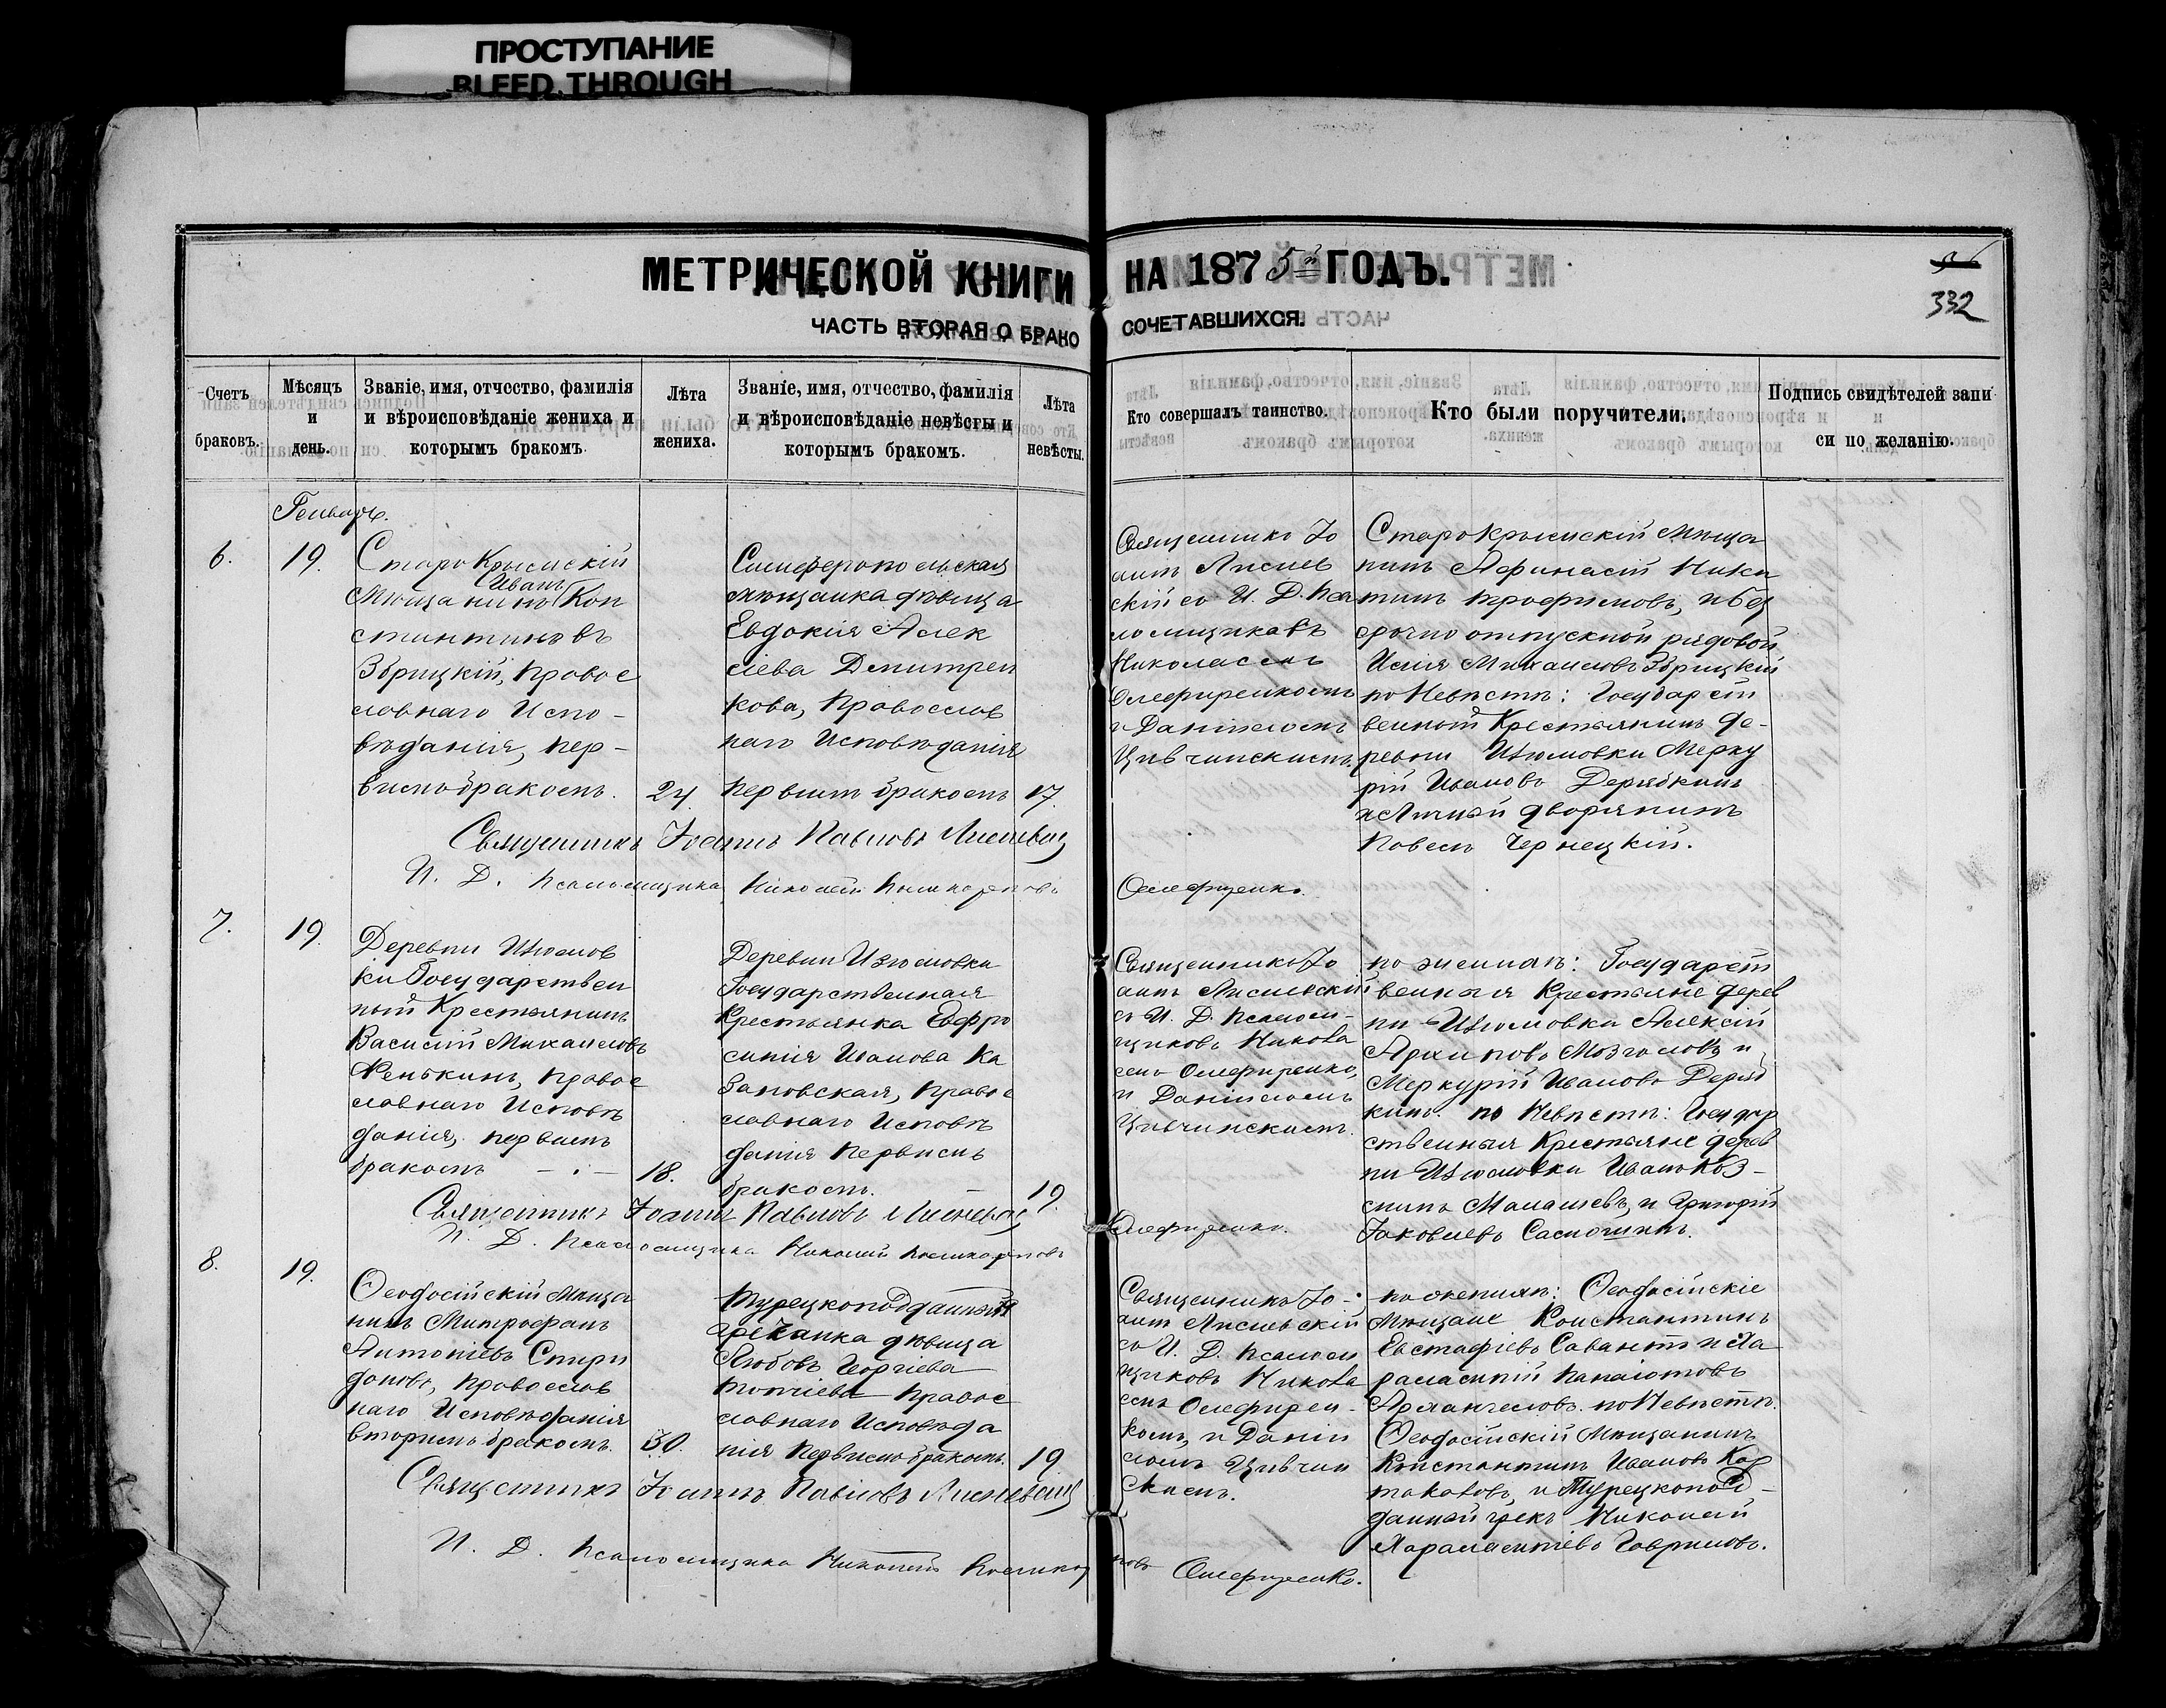 ПРОСТУПАНИЕ
BLEED THROUGH
МЕТРИЧЕСКОЙ КНИГИ НА 1875й ГОДЪ.
ЧАСТЬ ВТОРАЯ О БРАКО СОЧЕТАВШИХСЯ.
332
Счетъ браковъ.
Мѣсяцъ и день.
Званіе, имя, отчество, фамилія
и вѣроисповѣданіе жениха и
которымъ бракомъ.
Лѣта жениха.
Званіе, имя, отчество, фамилія
и вѣроисповѣданіе невѣсты и
которымъ бракомъ.
Лѣта невѣсты.
Кто совершалъ таинство.
Кто были поручители.
Подпись свидѣтелей запи
си по желанію.
Генварь.
6.
19.
Старокрымскій
Мѣщанинъ Иванъ Кон
стантиновъ
Збрицкій, Правос
лавнаго Испо-
вѣданія, пер-
вымъ бракомъ.
24.
Симферопольская
мѣщанка дѣвица
Евдокія Алек
сѣева Дмитрен
кова, Православ
наго Исповѣданія
первымъ бракомъ
17.
Священникъ Іо
аннъ Лиснев
скій со И. Д. Пса
ломщиковъ
Николаемъ
Олефиренкомъ
и Даніиломъ
Цивчинскимъ.
Старокрымскій Мѣща
нинъ Афанасій Ники
тинъ Трофимовъ, и без
срочно отпускной рядовой
Илія Михаиловъ Збрицкій
по Невѣстѣ: Государст
венной Крестьянинъ де-
ревни Изюмовки Мерку
рій Ивановъ Дерябкинъ
и Личный дворянинъ
Павелъ Чернецкій.
Священникъ Іоаннъ Павловъ Лисневскій
И. Д. Псаломщика Николай
Олефиренко.
7.
19.
Деревни Изюмов
ки Государствен
ный Крестьянинъ
Василій Михаиловъ
Фенькинъ, Правос
лавнаго Исповѣ
данія, первымъ
бракомъ
18.
Деревни Изюмовки
Государственная
Крестьянка Евфро
синія Иванова Ка
зановская, Правос
лавнаго Исповѣ
данія Первымъ
бракомъ.
19.
Священникъ Іо
аннъ Лисневскій
со И. Д. Псаломщ-
щиковъ Никола
емъ Олефиренко,
и Даніиломъ
Цивчинскимъ.
по женихѣ: Государст
венныя Крестьяне дерев
ни Изюмовки Алексій
Архиповъ Мозголовъ и
Меркурій Ивановъ Деряб
кинъ. по Невѣстѣ: Государ
ственныя Крестьяне дерев
ни Изюмовки Иванъ Коз-
минъ Малашевъ, и Григорій
Іаковлевъ Сасютинъ.
Священникъ Іоаннъ Павловъ Лисневскій
И. Д. Псаломщика Николай
Олефиренко.
8.
19.
Ѳеодосійскій Мѣща
нинъ Митрофанъ
Антоніевъ Спири
доновъ, Православ
наго Исповѣданія
вторымъ бракомъ.
30.
Турецкоподданная
гречанка дѣвица
Любовь Георгіева
Топчіева Правос
лавнаго Исповѣда
нія Первымъ бракомъ.
19
Священникъ Іо-
аннъ Лисневскій
со И. Д. Псаломщ
щиковъ Никола
емъ Олефирен-
комъ, и Даніи
ломъ Цивчин
скимъ.
по женихѣ: Ѳеодосійскіе
Мѣщане Константинъ
Евстафіевъ Савантъ и Ха
ралампій Панаіотовъ
Архангеловъ. по Невѣстѣ.
Ѳеодосійскій Мѣщанинъ
Константинъ Ивановъ Кар
таковъ, и Турецкопод-
данный грекъ Николай
Харалампіевъ Гавриловъ.
Священникъ Іоаннъ Павловъ Лисневскій
И. Д. Псаломщика Николай
Олефиренко.